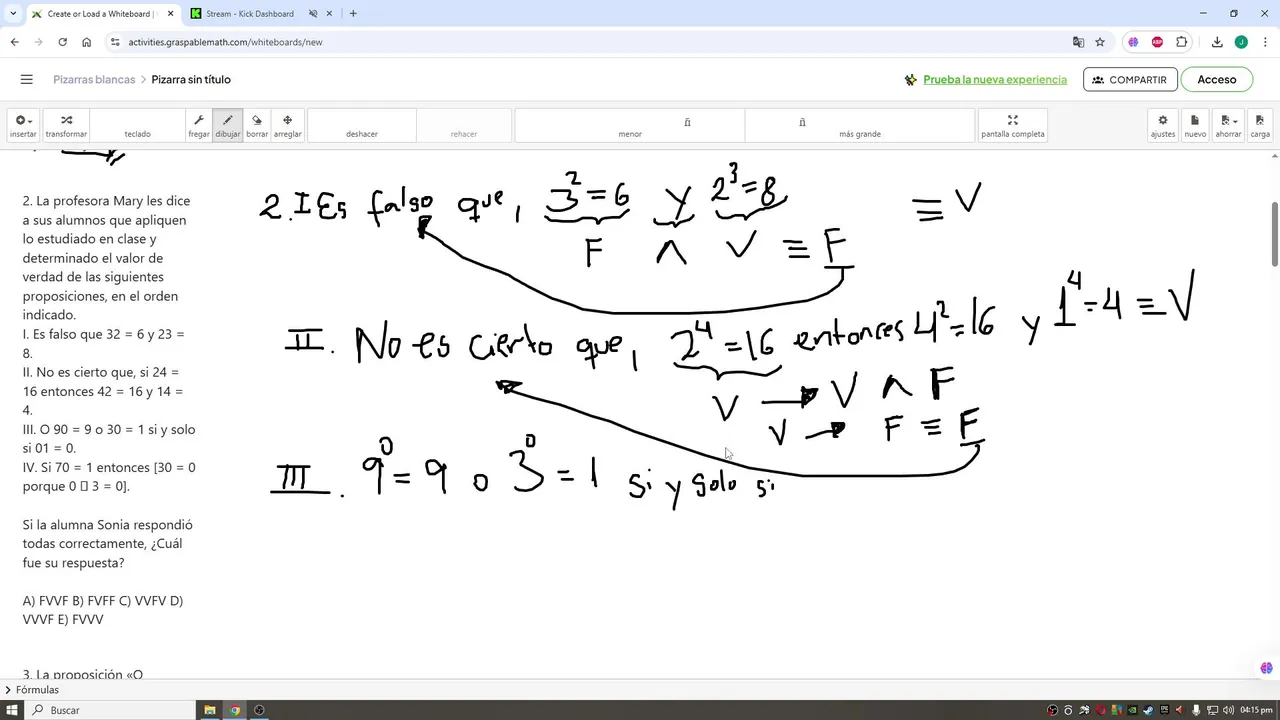 Create or Load a Whiteboard |
Stream - Kick Dashboard
activities.graspablemath.com/whiteboards/new
Pizarras blancas > Pizarra sin título
Prueba la nueva experiencia
COMPARTIR
Acceso
insertar transformar teclado fregar dibujar borrar arreglar deshacer rehacer menor ñ ñ más grande pantalla completa ajustes nuevo ahorrar carga
2. La profesora Mary les dice
a sus alumnos que apliquen
lo estudiado en clase y
determinado el valor de
verdad de las siguientes
proposiciones, en el orden
indicado.
I. Es falso que 32 = 6 y 23 =
8.
II. No es cierto que, si 24 =
16 entonces 42 = 16 y 14 =
4.
III. O 90 = 9 o 30 = 1 si y solo
si 01 = 0.
IV. Si 70 = 1 entonces [30 = 0
porque 0 ▯ 3 = 0].
Si la alumna Sonia respondió
todas correctamente, ¿Cuál
fue su respuesta?
A) FVVF B) FVFF C) VVFV D)
VVVF E) FVVV
3. La proposición «O
2. I Es falso que, 3² = 6 y 2³ = 8 ≡ V
F ∧ V ≡ F
II. No es cierto que, 2⁴ = 16 entonces 4² = 16 y 1⁴ = 4 ≡ V
V → V ∧ F
V → F ≡ F
III. 9⁰ = 9 o 3⁰ = 1 si y solo si
Fórmulas
Buscar
04:15 p.m.